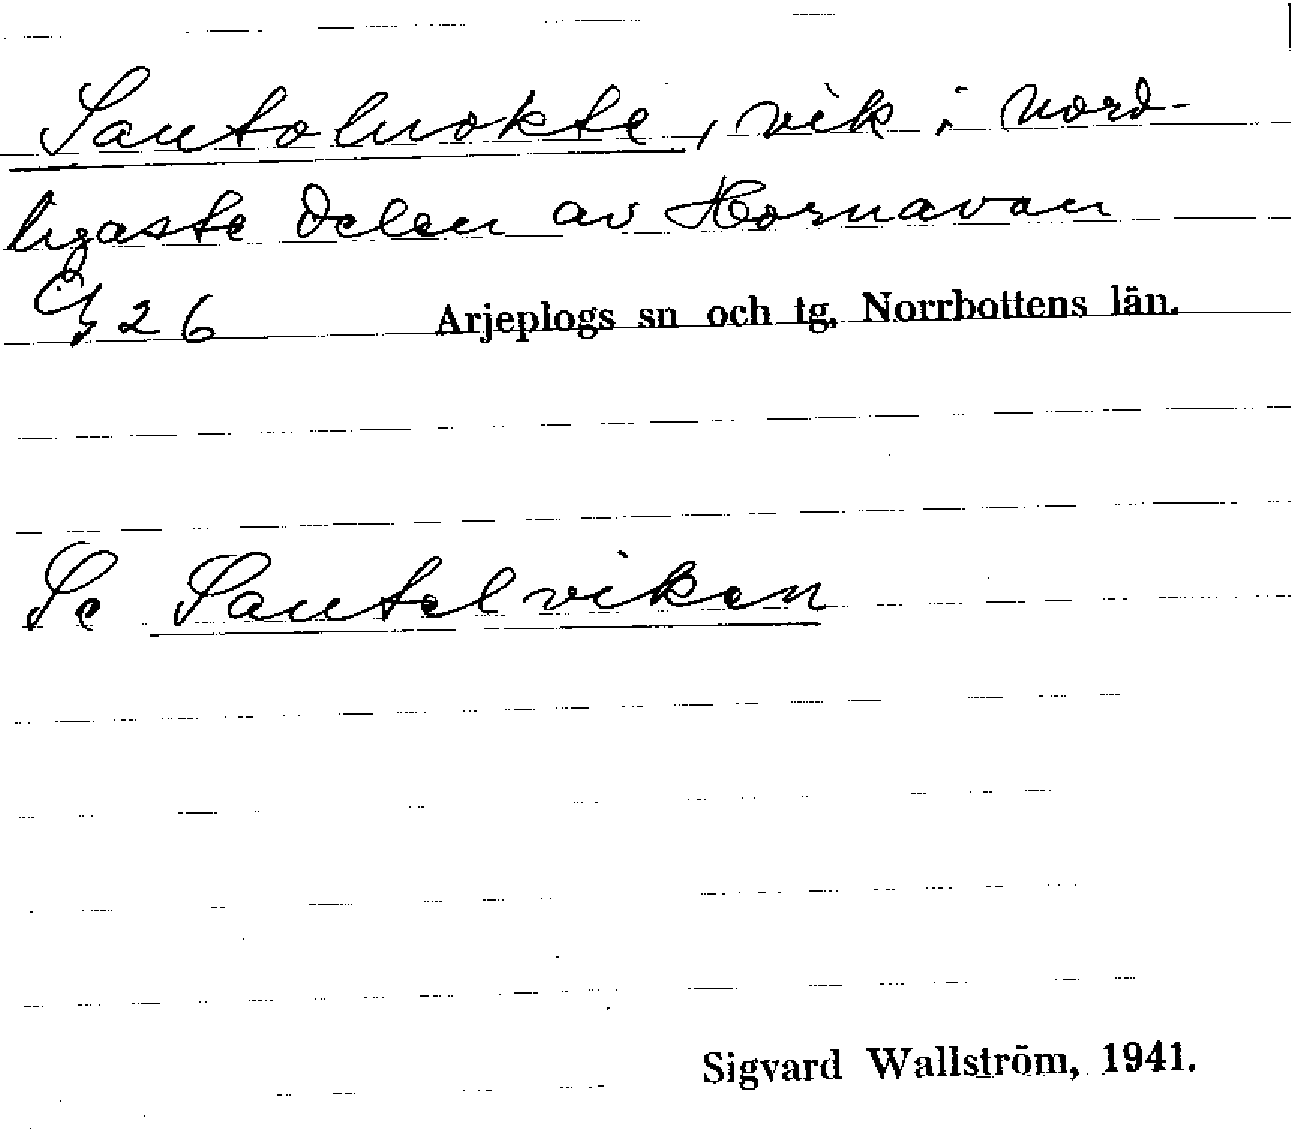 Sautoluokte, vik i nord-
ligaste delen av Hornavan
26 Arjeplogs sn och tg. Norrbottens län.
Se Sautelviken
Sigvard Wallström, 1941.